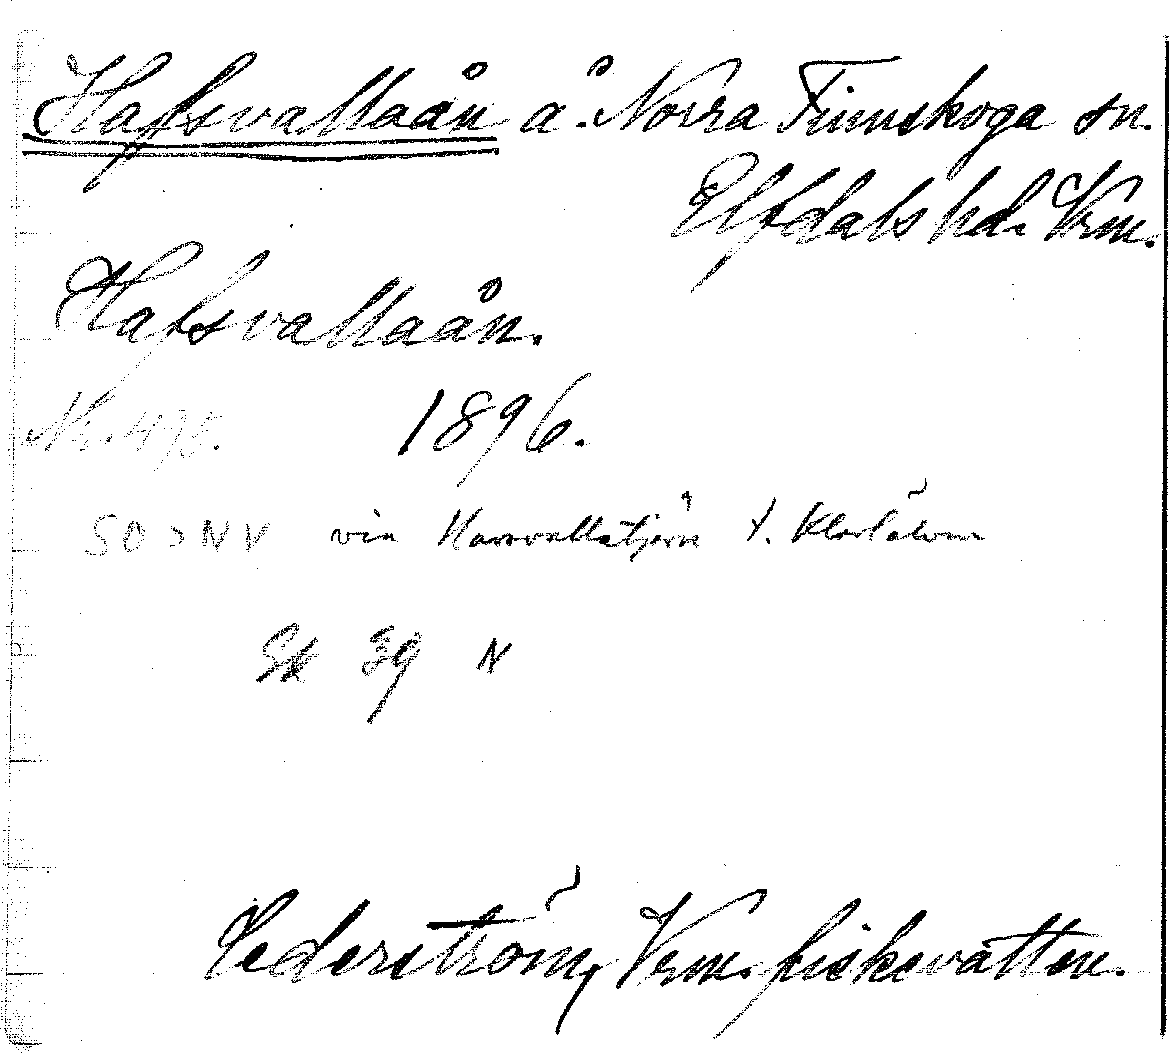 Hafsvallaån å. Norra Finnskoga sn.
Elfdals hd. Vrm.
Hafsvallaån.
Nr. 475. 1896.
SO > NV via Havsvallatjärn t. Klarälven
Sk 39 N
Cederström, Vrm. fiskevatten.